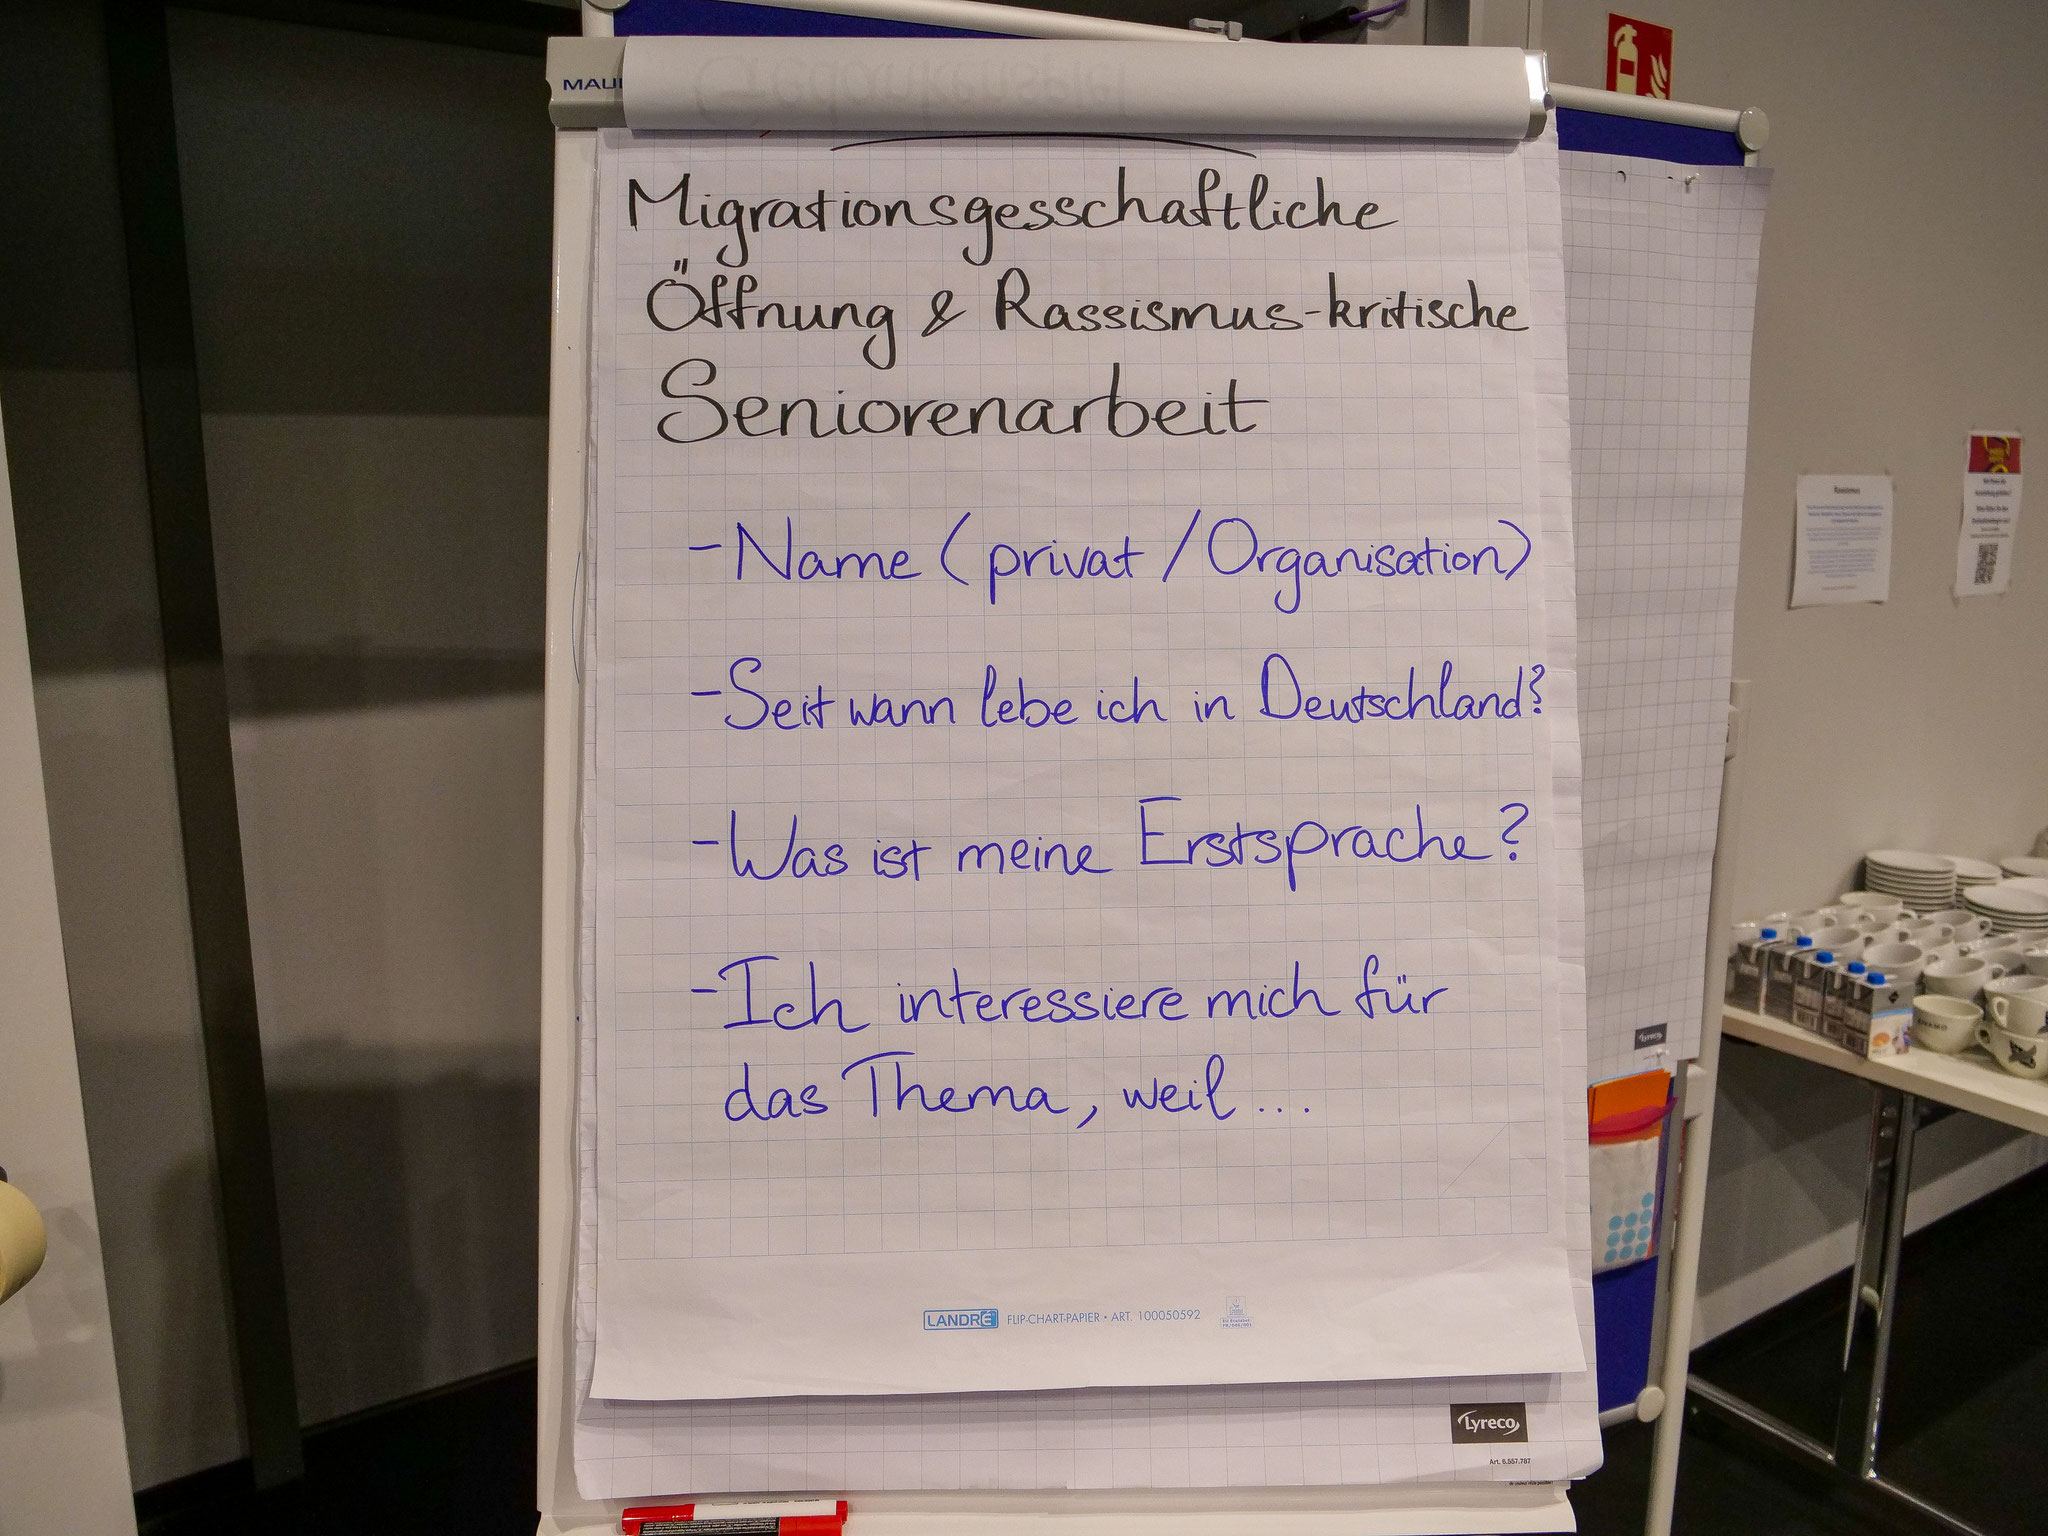 MAUL
Migrationsgesschaftliche
Öffnung & Rassismus-kritische
Seniorenarbeit
- Name (privat / Organisation)
- Seit wann lebe ich in Deutschland?
- Was ist meine Erstsprache?
- Ich interessiere mich für
das Thema, weil ...
LANDRÉ FLIP-CHART-PAPIER • ART. 100050592
Lyreco
Art. 6.557.787
Lyreco
Rassismus